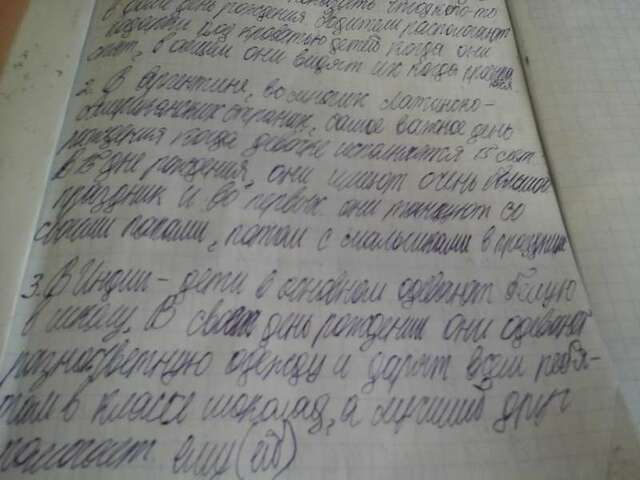 в свой день рождения родители располагают
подарки под кроватью детей когда они
спят, в общем они видят их когда
2. В Аргентине, во многих Латиноко-
американских странах, самое важное день
рождения когда девочке исполняется 15 лет
В 15 дне рождения, они имеют очень большой
праздник и во первых они танцуют со
своими папами, потом с мальчиками в празднике
3. В Индии - дети в основном одевают белую
в школу. В свой день рождения они одевают
разноцветную одежду и дарят всем ребя-
там в классе шоколад, а лучший друг
помогает ему (ей)